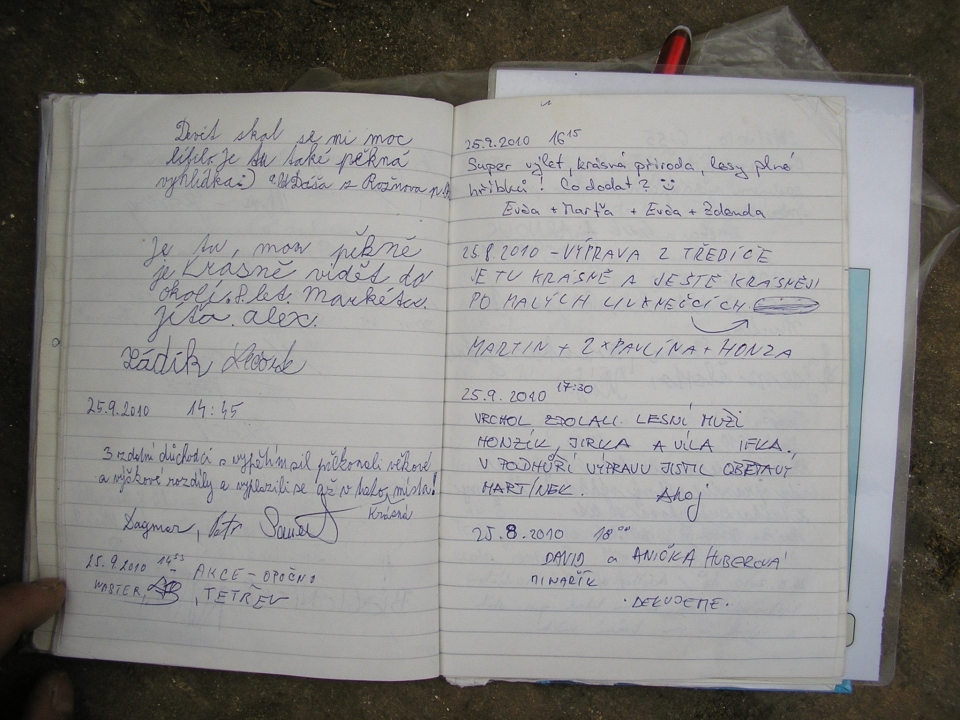 Devět skal se mi moc
líbilo je tu také pěkná
vyhlídka:) Dáša z Rožnova p.R.
Je tu, moc pěkně
je krásně vidět do
okolí. 8. let. Markéta.
Jíťa. alex.
Ládík
25.9.2010 14:45
3 zdatní důchodci s vypětím sil překonali věkové
a výškové rozdíly a vyplazili se až v tato místa!
Krásná
Dagmar, Petr
25.9.2010 14 53 AKCE - OPOČNO
WASTER, , TETŘEV
25.9.2010 16 15
Super výlet, krásná příroda, lesy plné
hříbků! Co dodat? ☺
Evča + Marťa + Evča + Zdenda
25.8.2010 - VÝPRAVA Z TŘEBÍČE
JE TU KRÁSNĚ A JEŠTĚ KRÁSNĚJI
PO MALÝCH
MARTIN + 2×PAVLÍNA + HONZA
25.9.2010 17:30
VRCHOL ZDOLALI LESNÍ MUŽI
HONZÍK, JIRKA A VÍLA IFKA.
V PODHŮŘÍ VÝPRAVU JISTIL OBĚTAVÝ
MARTÍNEK. Ahoj
25.8.2010 18 00
DAVID a ANIČKA HUBEROVÁ
MINAŘÍK
• DĚKUJEME •